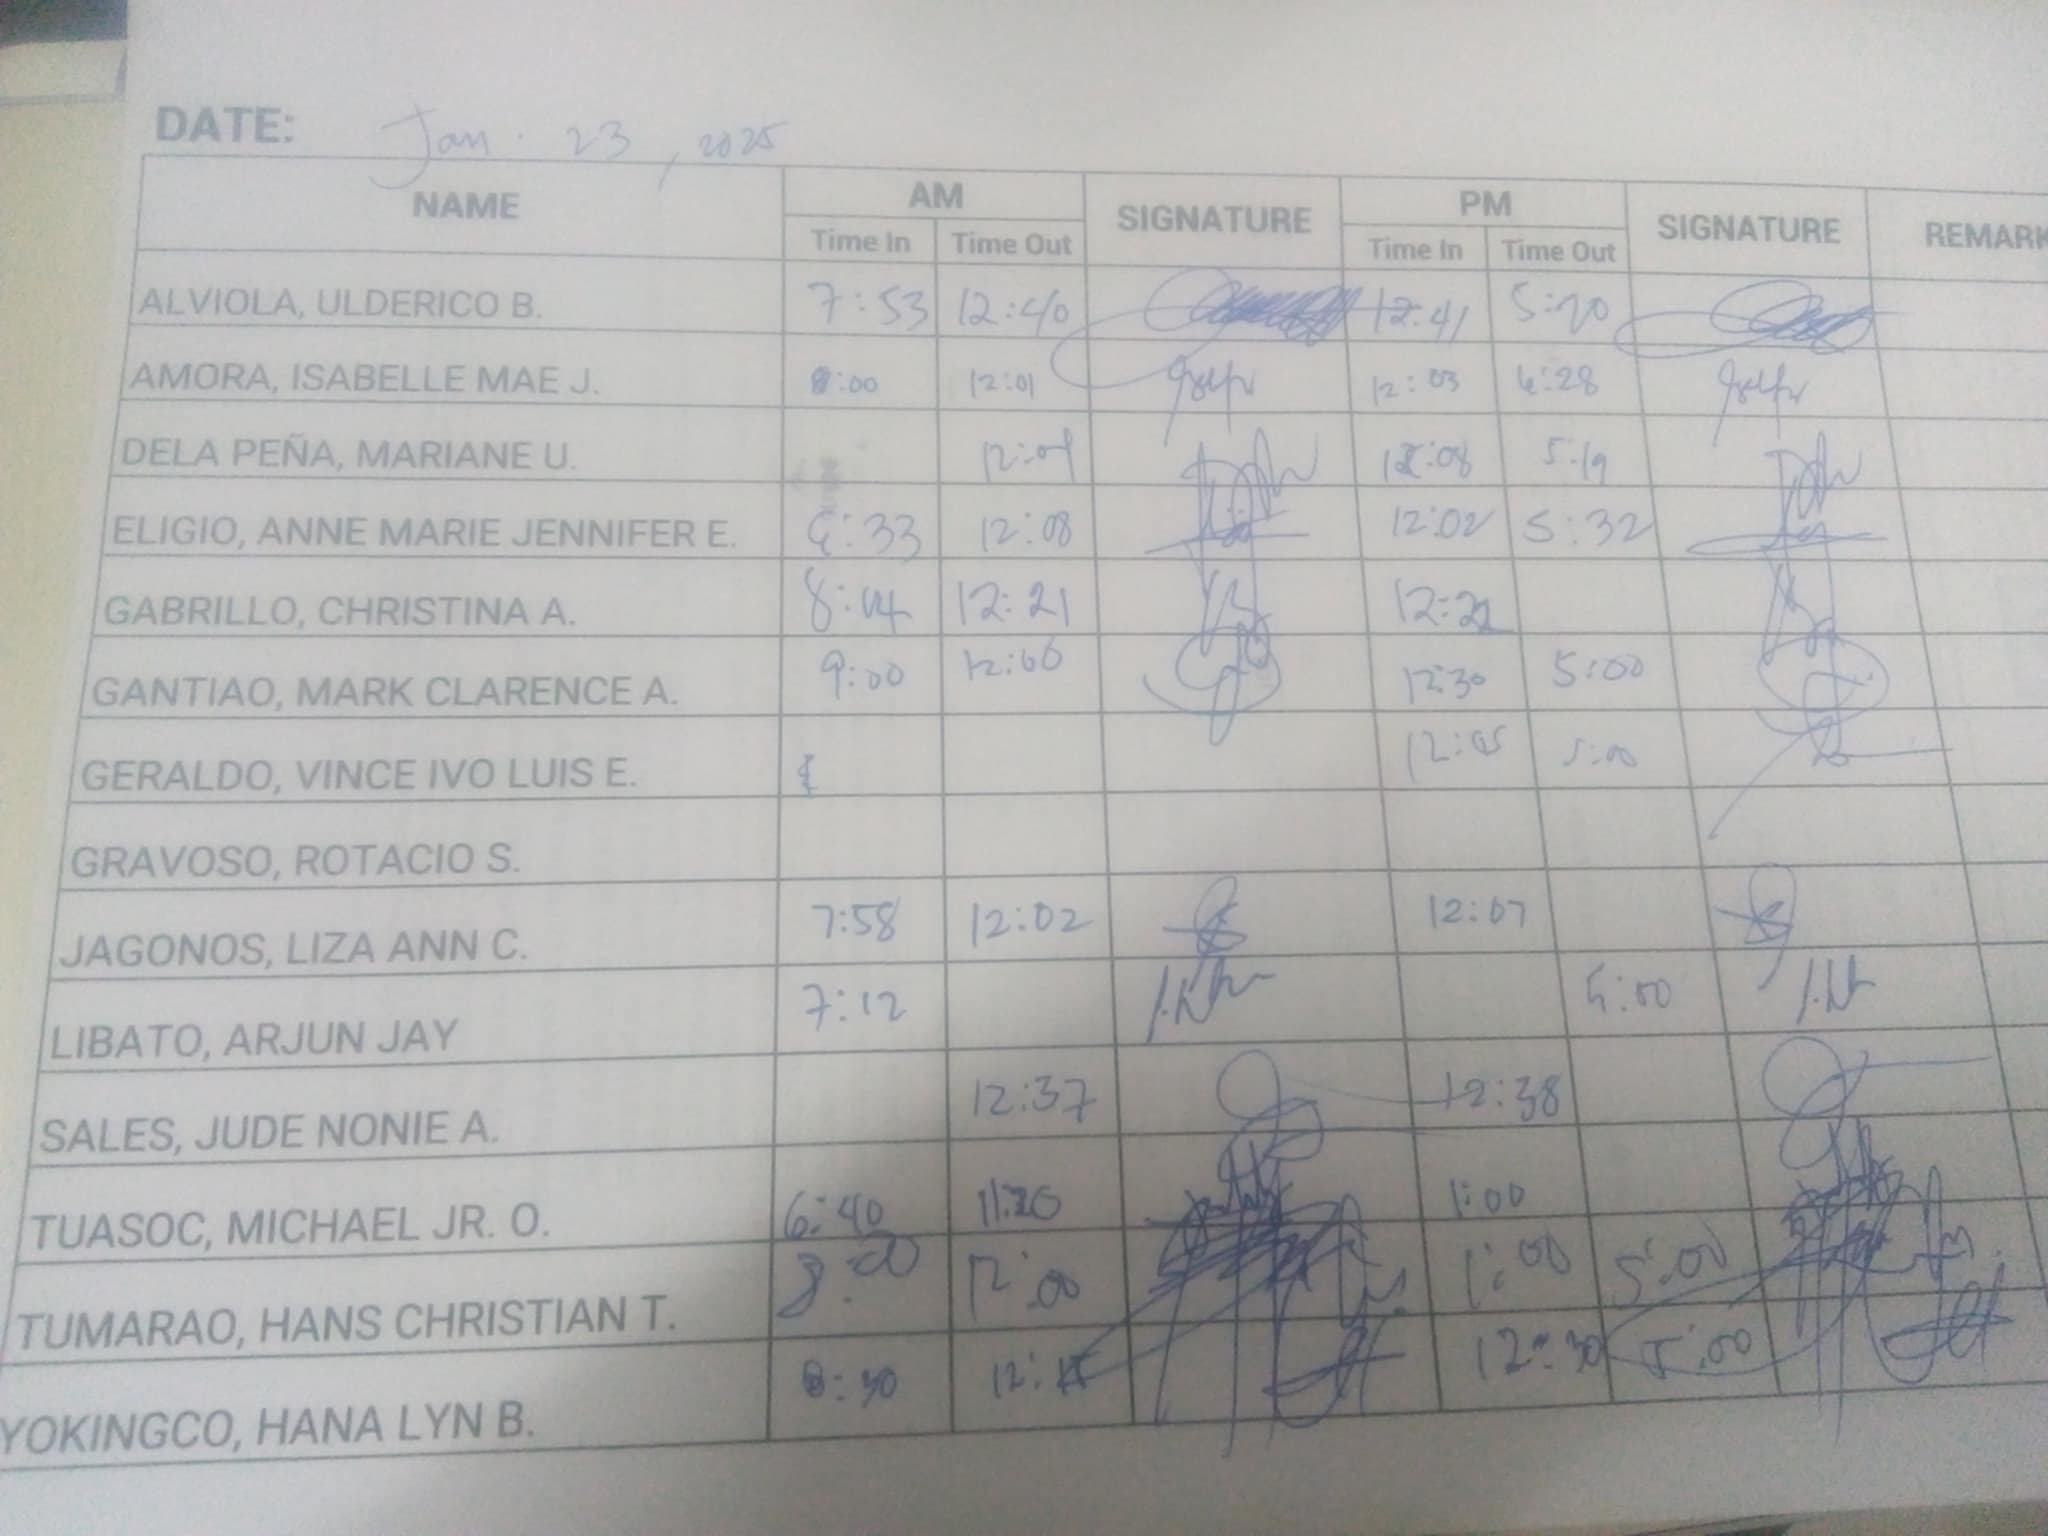 DATE: Jan. 23, 2025
NAME AM SIGNATURE PM SIGNATURE REMARK
Time In Time Out Time In Time Out
ALVIOLA, ULDERICO B. 7:53 12:40 12:41 5:20
AMORA, ISABELLE MAE J. 8:00 12:01 12:03 6:28
DELA PEÑA, MARIANE U. 12:08 5:19
ELIGIO, ANNE MARIE JENNIFER E. 12:08 12:02 5:32
GABRILLO, CHRISTINA A. 8:04 12:21 12:22
GANTIAO, MARK CLARENCE A. 9:00 12:00 12:30 5:00
GERALDO, VINCE IVO LUIS E. 12:05 5:00
GRAVOSO, ROTACIO S.
JAGONOS, LIZA ANN C. 7:58 12:02 12:07
LIBATO, ARJUN JAY 7:12 5:00
SALES, JUDE NONIE A. 12:37 12:38
TUASOC, MICHAEL JR. O. 6:40 11:20 1:00
TUMARAO, HANS CHRISTIAN T. 8:00 12:00 1:00 5:00
YOKINGCO, HANA LYN B. 8:30 12:30 5:00